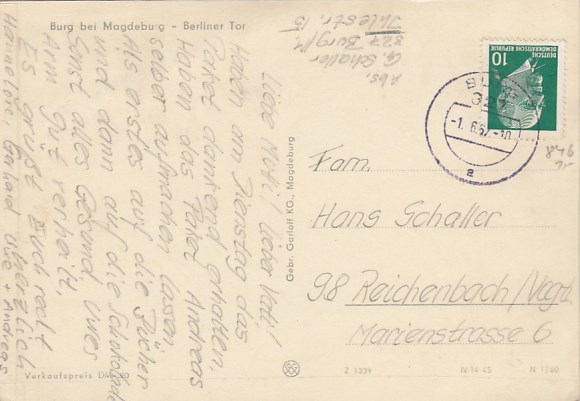 Burg bei Magdeburg - Berliner Tor
Abs.
G. Schaller
327 Burg/M
Ihlestr. 15
Liebe Mutti! Lieber Vati!
Haben am Dienstag das
Paket dankend erhalten.
Haben das Paket Andreas
selber aufmachen lassen.
Als erstes auf die Bücher
und dann auf die Schokolade
Sonst alles Gesund, Uwes
Arm gut verheilt.
Es grüßt Euch recht
herzlich
Hannelore, Gerhard Uwe + Andreas
Gebr. Garloff KG., Magdeburg
DEUTSCHE
DEMOKRATISCHE REPUBLIK
10
327
-1. 6.67.-10
a
Fam.
Hans Schaller
98 Reichenbach/Vogtl.
Marienstrasse 6
Verkaufspreis DM
Z 1229
IV-14-45
N 1/60